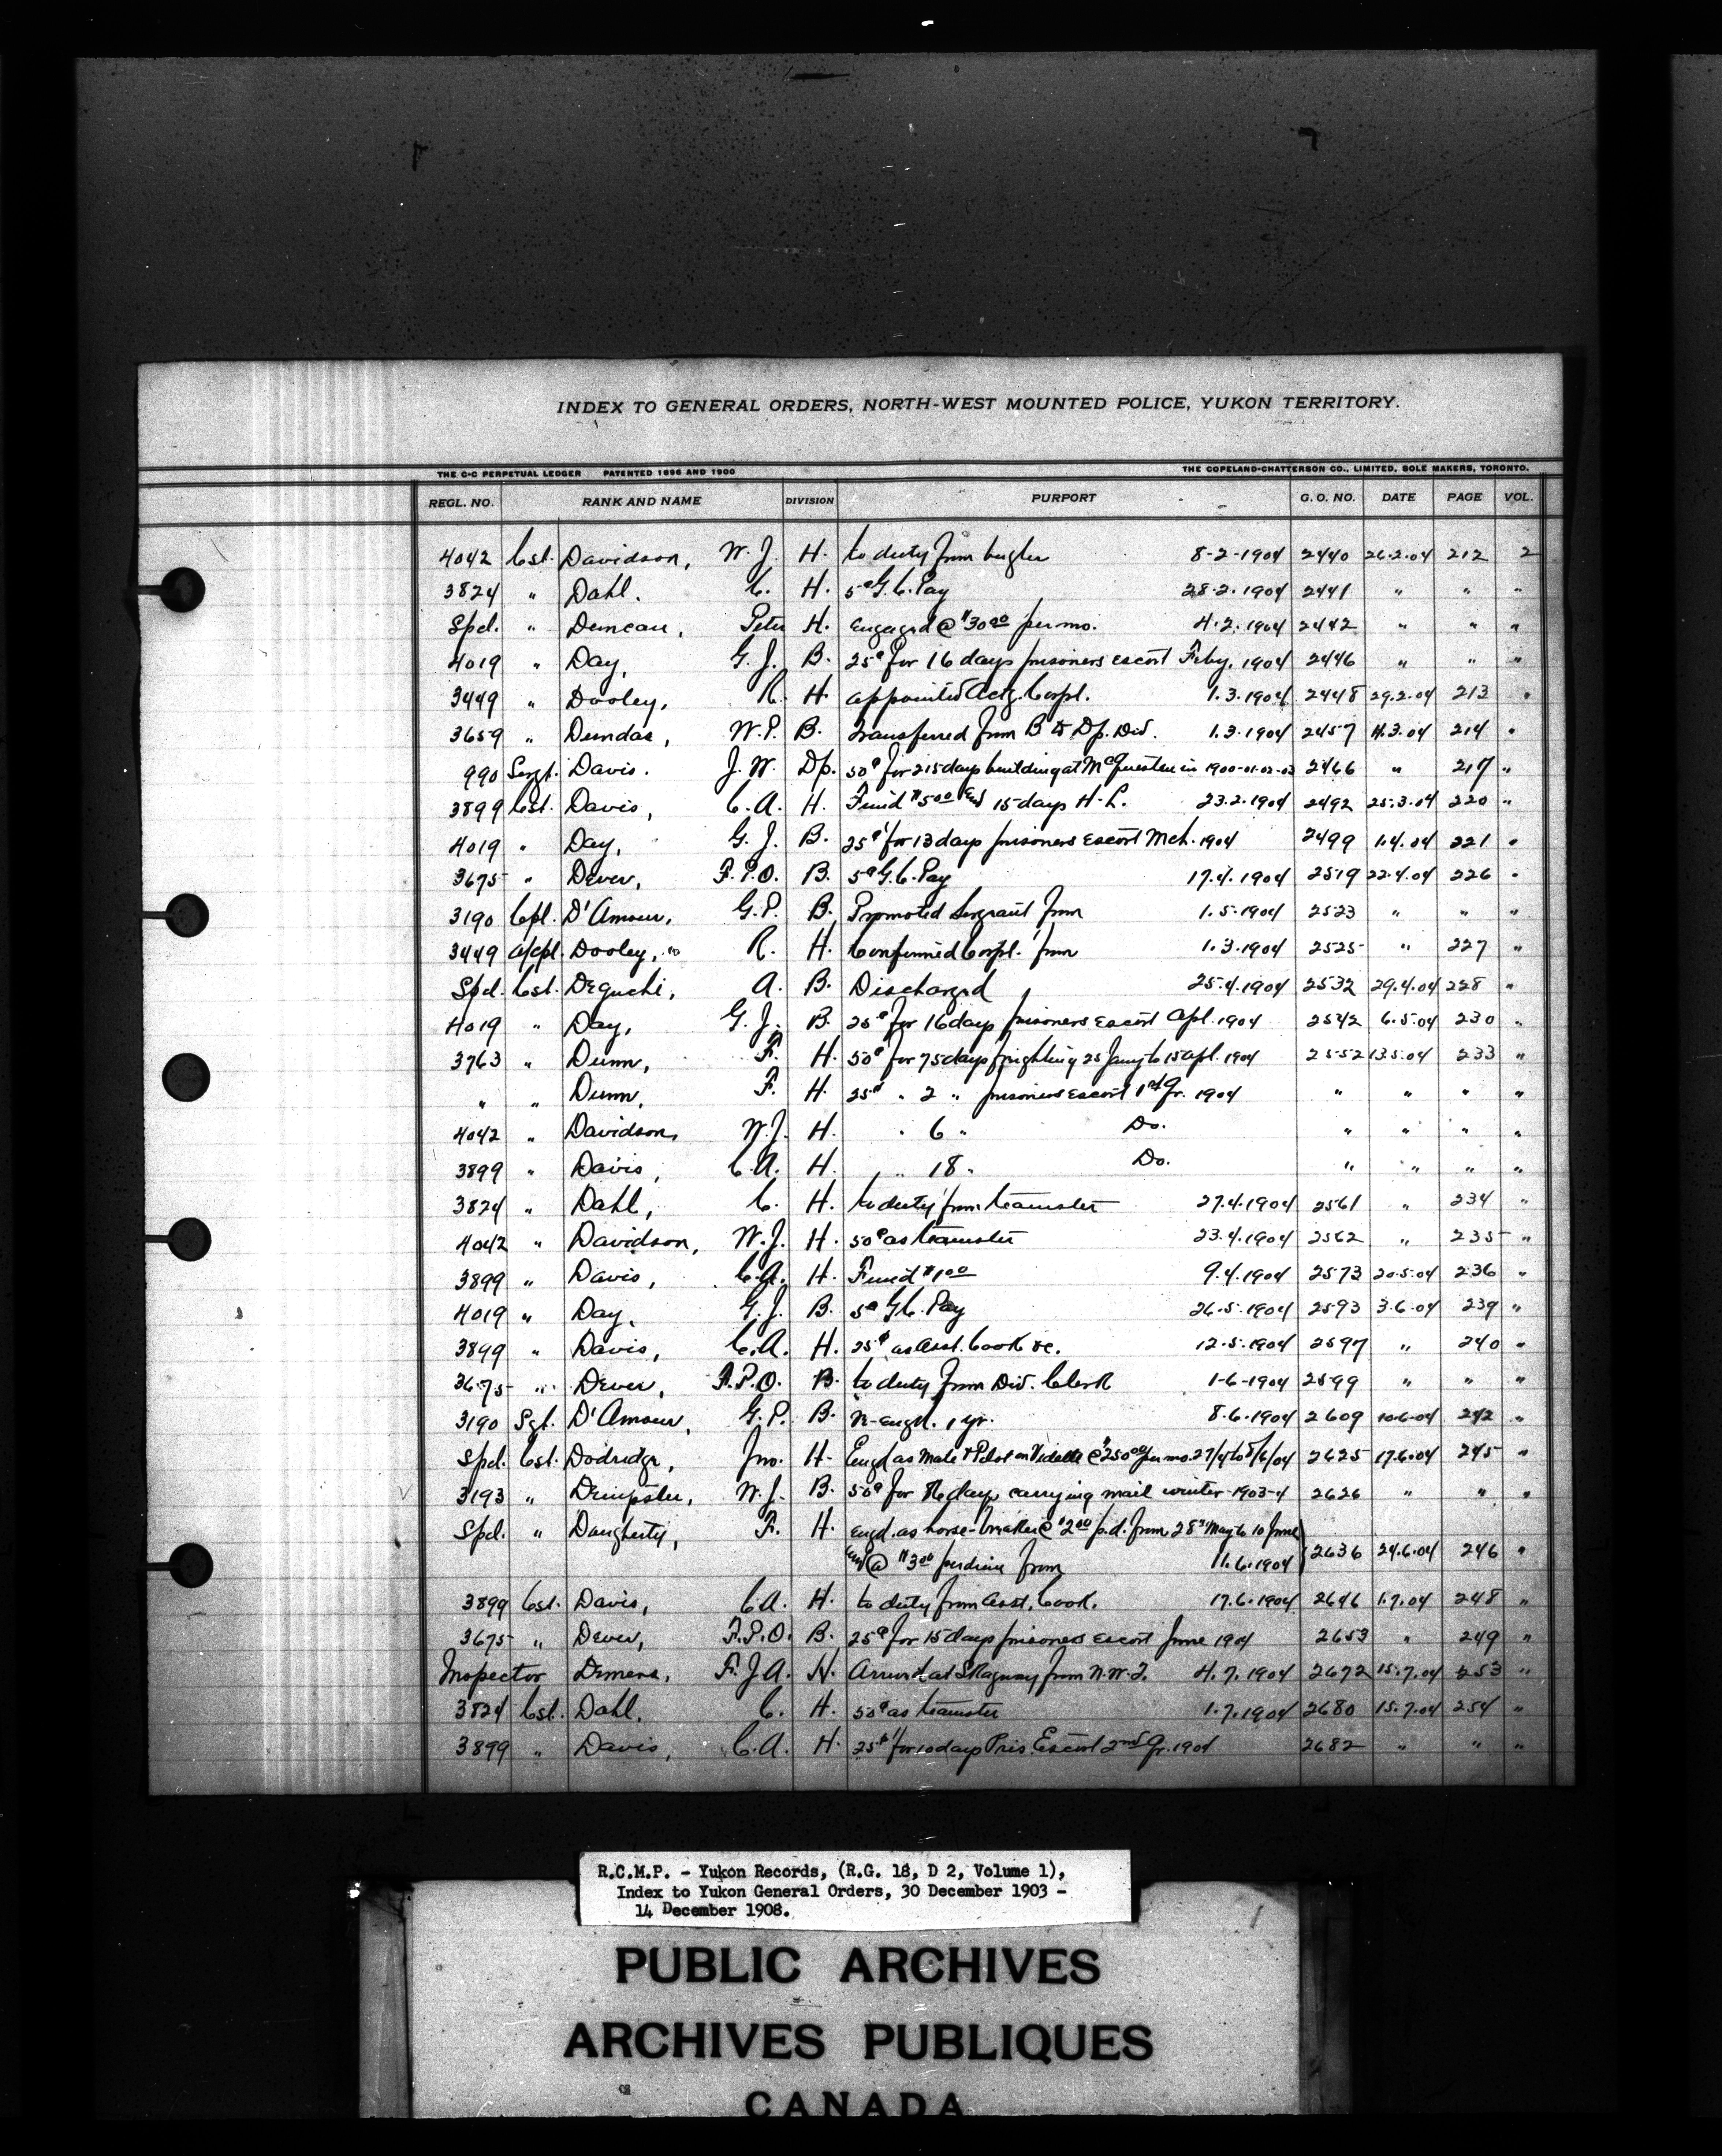 INDEX TO GENERAL ORDERS, NORTH-WEST MOUNTED POLICE, YUKON TERRITORY.
THE C-C PERPETUAL LEDGER PATENTED 1896 AND 1900 THE COPELAND-CHATTERSON CO., LIMITED, SOLE MAKERS, TORONTO.
REGL. NO. RANK AND NAME DIVISION PURPORT G. O. NO. DATE PAGE VOL.
4042 Cst. Davidson, W. J. H. to duty from bugler 8-2-1904 2440 26.2.04 212 2
3824 " Dahl. C. H. 5¢ G. C. Pay 28.2.1904 2441 " " "
Spcl. " Duncan, Peter H. Engaged @ $30 00 per mo. 4.2.1904 2442 " " "
4019 " Day, G. J. B. 25¢ for 16 days prisoners escort Feby. 1904 2446 " " "
3449 " Dooley, R. H. appointed Actg. Corpl. 1.3.1904 2448 29.2.04 213 "
3659 " Dundas, W. P. B. Transferred from B to Dp. Div. 1.3.1904 2457 11.3.04 214 "
990 Sergt. Davis. J. W. Dp. 50¢ for 215 days building at McQuesten in 1900-01-02-03 2466 " 217 "
3899 Cst. Davis, C. A. H. Fined $5 00 and 15 days H. L. 23.2.1904 2492 25.3.04 220 "
4019 " Day, G. J. B. 25¢ for 13 days prisoners escort Mch. 1904 2499 1.4.04 221 "
3675 " Dever, F. P. O. B. 5¢ G. C. Pay 17.4.1904 2519 22.4.04 226 "
3190 Cpl. D'Amour, G. P. B. Promoted Sergeant from 1.5.1904 2523 " " "
3449 a/cpl. Dooley, R. H. Confirmed Corpl. from 1.3.1904 2525 " 227 "
Spcl. Cst. Deguchi, A. B. Discharged 25.4.1904 2532 29.4.04 228 "
4019 " Day, G. J. B. 25¢ for 16 days prisoners escort Apl. 1904 2542 6.5.04 230 "
3763 " Dunn, F. H. 50¢ for 75 days freighting 25 Jany to 15 apl. 1904 2552 13.5.04 233 "
" " Dunn, F. H. 25¢ " 2 " prisoners escort 1st Qr. 1904 " " " "
4042 " Davidson, W. J. H. " 6 " Do. " " " "
3899 " Davis, C. A. H. " 18 " Do. " " " "
3824 " Dahl, C. H. to duty from teamster 27.4.1904 2561 " 234 "
4042 " Davidson, W. J. H. 50¢ as teamster 23.4.1904 2562 " 235 "
3899 " Davis, C. A. H. Fined $1 00 9.4.1904 2573 20.5.04 236 "
4019 " Day, G. J. B. 5¢ G. C. Pay 26.5.1904 2593 3.6.04 239 "
3899 " Davis, C. A. H. 25¢ as Asst. Cook &c. 12.5.1904 2597 " 240 "
3675 " Dever, F. P. O. B. to duty from Div. Clerk 1-6-1904 2599 " " "
3190 Sgt. D'Amour, G. P. B. Re-engd. 1 yr. 8.6.1904 2609 10.6.04 242 "
Spcl. Cst. Dodridge, Jno. H. Engd as Mate & Pilot on Vidette @ $250 00 per mo. 27/4 to 8/6/04 2625 17.6.04 245 "
3193 " Dempster, W. J. B. 50¢ for 76 days carrying mail winter 1903-4 2626 " " "
Spcl. " Daugherty, F. H. engd. as horse-breaker @ $2 00 p.d. from 28 May to 10 June
and @ $3 00 per diem from 11.6.1904 2636 24.6.04 246 "
3899 Cst. Davis, C. A. H. to duty from Asst. Cook. 17.6.1904 2646 1.7.04 248 "
3675 " Dever, F. P. O. B. 25¢ for 15 days prisoners escort June 1904 2653 " 249 "
Inspector Demers, F. J. A. H. Arrived at Skaguay from N. W. T. 4.7.1904 2672 15.7.04 253 "
3824 Cst. Dahl, C. H. 50¢ as teamster 1.7.1904 2680 15.7.04 254 "
3899 " Davis, C. A. H. 25¢ for 10 days Pris. Escort 2nd Qr. 1904 2682 " " "
R.C.M.P. - Yukon Records, (R.G. 18, D 2, Volume 1),
Index to Yukon General Orders, 30 December 1903 -
14 December 1908.
PUBLIC ARCHIVES
ARCHIVES PUBLIQUES
CANADA